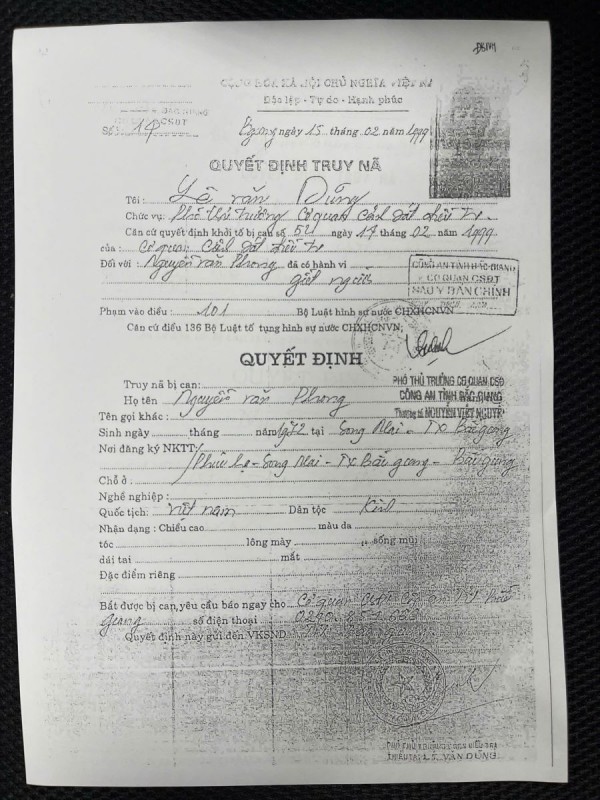 CỘNG HÒA XÃ HỘI CHỦ NGHĨA VIỆT NA
Độc lập - Tự do - Hạnh phúc
CSĐT
Số: 14
ngày 15 tháng 02 năm 1999
QUYẾT ĐỊNH TRUY NÃ
Tôi: Lê Văn Dũng
Chức vụ: Phó Thủ trưởng Cơ quan Cảnh sát điều tr
Căn cứ quyết định khởi tố bị can số 52 ngày 14 tháng 02 năm 1999
của: Cơ quan Cảnh sát điều tr
Đối với: Nguyễn văn Phong đã có hành vi
giết người
CÔNG AN TỈNH BẮC GIANG
CƠ QUAN CSĐT
SAO Y BẢN CHÍNH
Phạm vào điều: 101 Bộ Luật hình sự nước CHXHCNVN
Căn cứ điều 136 Bộ Luật tố tụng hình sự nước CHXHCNVN;
QUYẾT ĐỊNH
PHÓ THỦ TRƯỞNG CƠ QUAN CSĐ
CÔNG AN TỈNH BẮC GIANG
Truy nã bị can:
Họ tên Nguyễn văn Phong
Tên gọi khác:
Sinh ngày tháng năm 1972 tại Song Mai - TX Bắc giang
Nơi đăng ký NKTT: Phúc Hạ - Song Mai - TX Bắc giang - Bắc giang
Chỗ ở:
Nghề nghiệp:
Quốc tịch: việt nam Dân tộc Kinh
Nhận dạng: Chiều cao màu da
tóc lông mày sống mũi
dái tai mắt
Đặc điểm riêng
Bắt được bị can, yêu cầu báo ngay cho Cơ quan CSĐT Bắc
giang số điện thoại
Quyết định này gửi đến VKSND
VĂN DŨNG